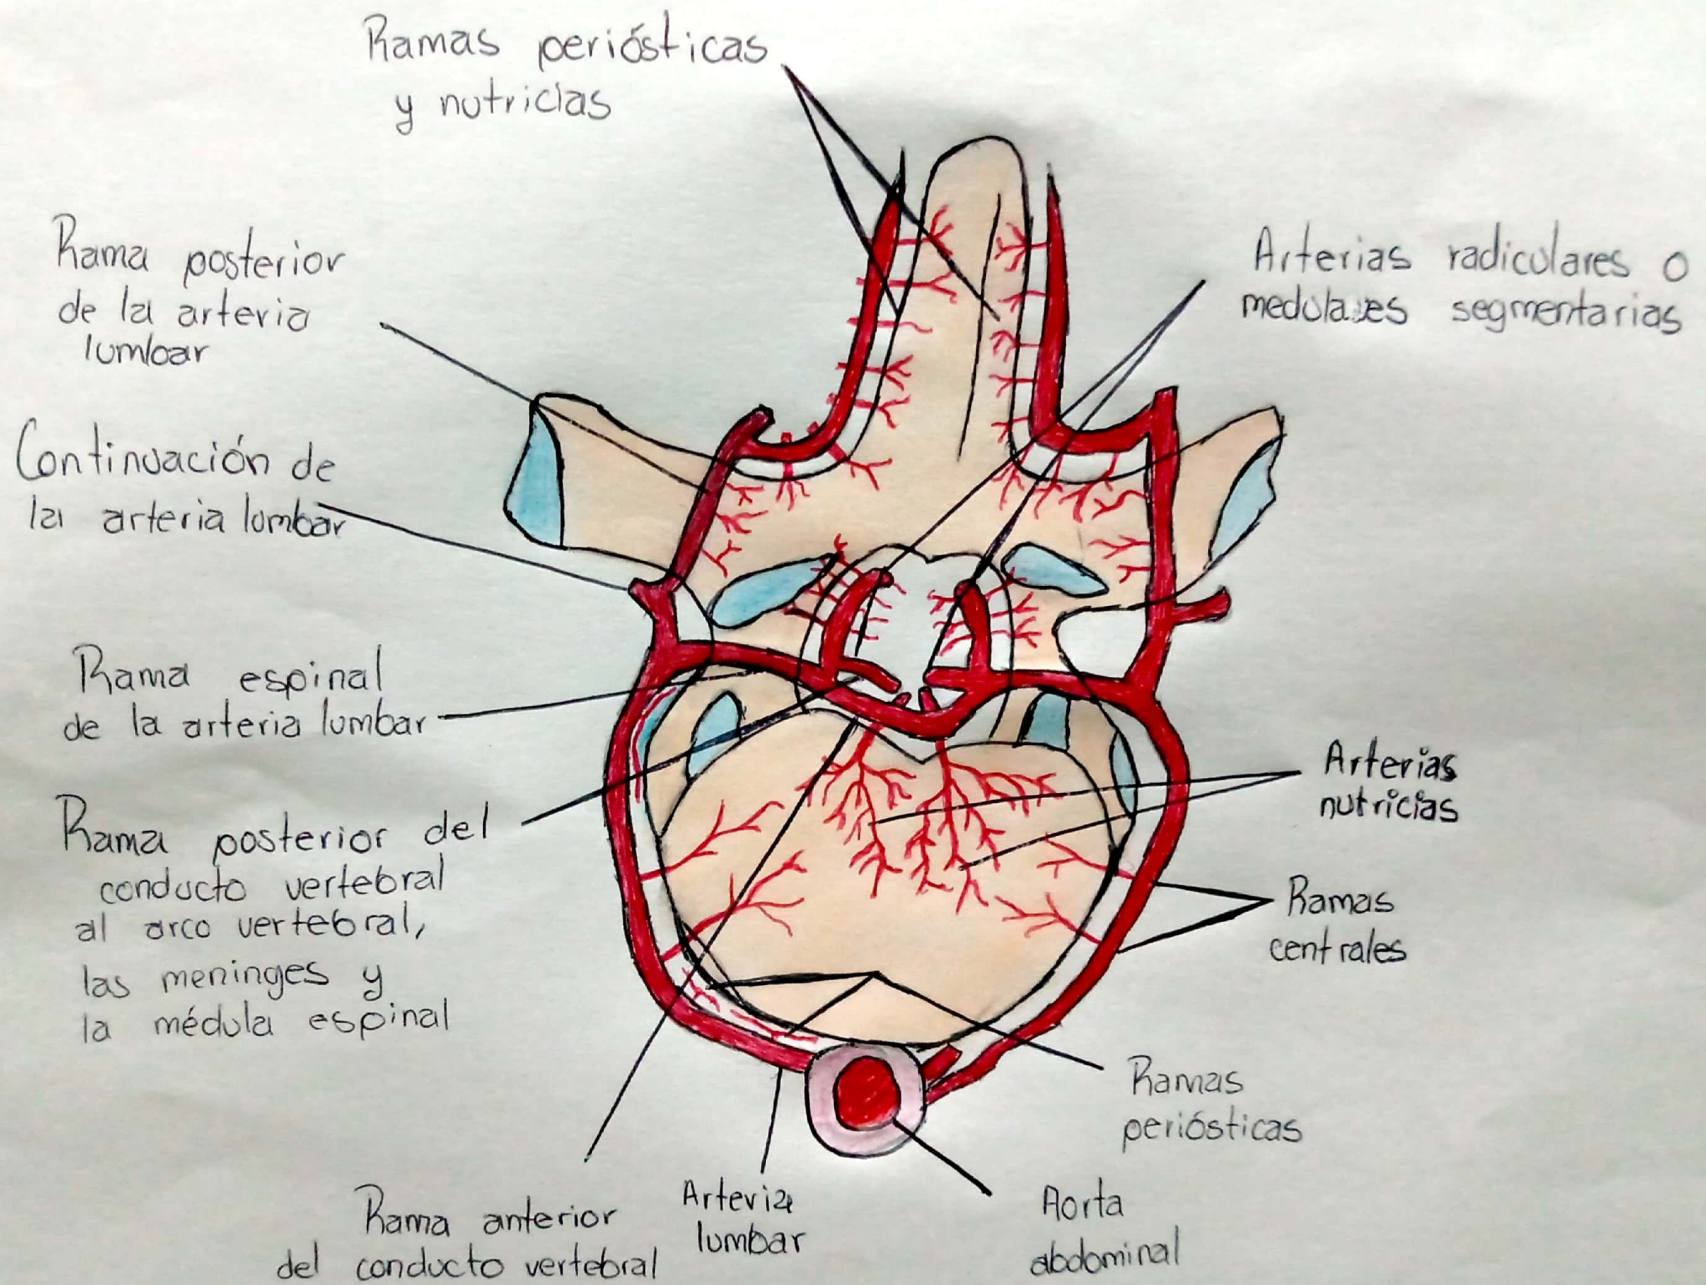 Ramas periósticas
y nutricias
Rama posterior
de la arteria
lumbar
Arterias radiculares o
medulares segmentarias
Continuación de
la arteria lumbar
Rama espinal
de la arteria lumbar
Rama posterior del
conducto vertebral
al arco vertebral,
las meninges y
la médula espinal
Arterias
nutricias
Ramas
centrales
Ramas
periósticas
Rama anterior
del conducto vertebral
Arteria
lumbar
Aorta
abdominal